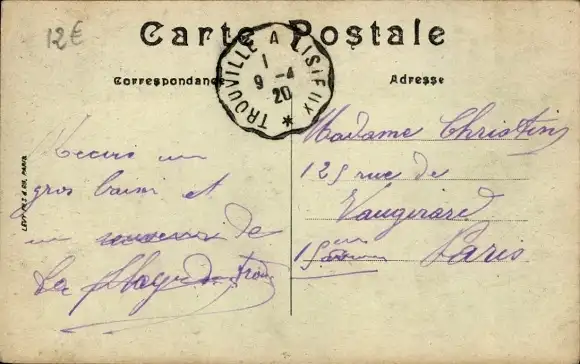 12€
Carte Postale
TROUVILLE A LISIEUX
1
9 - 4
20
Correspondance
Adresse
LEVY FILS & Cie, PARIS
Recois un
gros baiser et
un souvenir de
la plage de
Madame Christin
125 rue de
Vaugirard
15
Paris